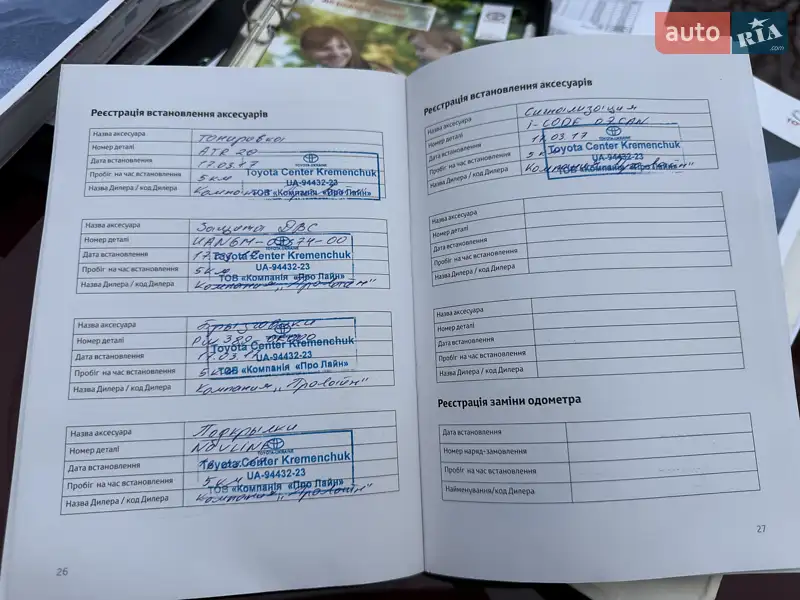 auto RIA.com
Реєстрація встановлення аксесуарів
Назва аксесуара Тонировка
Номер деталі ATR 20
Дата встановлення 17.03.17
Пробіг на час встановлення 5 км
Назва Дилера / код Дилера
TOYOTA UKRAINE
Toyota Center Kremenchuk
UA-94432-23
ТОВ «Компанія «Про Лайн»
Назва аксесуара Защита ДВС
Номер деталі
Дата встановлення
Пробіг на час встановлення 5 км
Назва Дилера / код Дилера Компания „Пролайн"
Toyota Center Kremenchuk
UA-94432-23
ТОВ «Компанія «Про Лайн»
Назва аксесуара Брызговики
Номер деталі
Дата встановлення 17.03.17
Пробіг на час встановлення 5 км
Назва Дилера / код Дилера Компания „Пролайн"
Toyota Center Kremenchuk
UA-94432-23
ТОВ «Компанія «Про Лайн»
Назва аксесуара Подкрылки
Номер деталі NOVLINE
Дата встановлення
Пробіг на час встановлення 5 км
Назва Дилера / код Дилера Компания „Пролайн"
TOYOTA UKRAINE
Toyota Center Kremenchuk
UA-94432-23
ТОВ «Компанія «Про Лайн»
26
Реєстрація встановлення аксесуарів
Назва аксесуара Сигнализация
Номер деталі i-CODE
Дата встановлення 17.03.17
Пробіг на час встановлення 5 к
Назва Дилера / код Дилера
Toyota Center Kremenchuk
UA-94432-23
ТОВ «Компанія «Про Лайн»
Назва аксесуара
Номер деталі
Дата встановлення
Пробіг на час встановлення
Назва Дилера / код Дилера
Назва аксесуара
Номер деталі
Дата встановлення
Пробіг на час встановлення
Назва Дилера / код Дилера
Реєстрація заміни одометра
Дата встановлення
Номер наряд-замовлення
Пробіг на час встановлення
Найменування/код Дилера
27